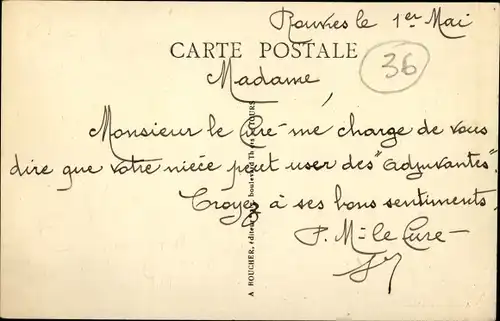 Rouvres le 1er Mai
CARTE POSTALE
36
Madame,
Monsieur le Curé me charge de vous
dire que votre nièce peut user des "adjuvantes".
Croyez à ses bons sentiments.
P. Mr le Curé
A. BOUCHER, éditeur, boulevard TOURS